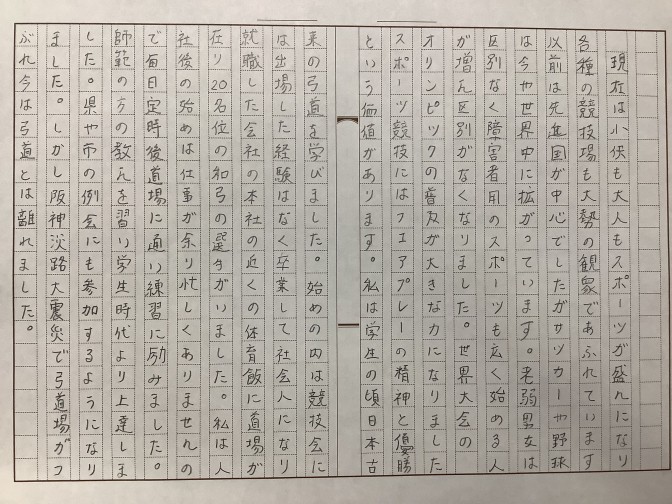 現在は小供も大人もスポーツが盛れになり
各種の競技場も大勢の観象であふれています
以前は先進国が中心でしたがサッカーや野球
は今や世界中に拡がっています。老弱男女は
区別なく障害者用のスポーツも広く始める人
が増え区別がなくなりました。世界大会の
オリンピックの普及が大きな力になりました
スポーツ競技にはフエアプレーの精神と優勝
という価値があります。私は学生の頃日本古
来の弓道を学びました。始めの内は競技会に
は出場した経験はなく卒業して社会人になり
就職した会社の本社の近くの体育館に道場が
在り20名位の和弓の選手がいました。私は入
社後の始めは仕事が余り忙しくありませんの
で毎日定時後道場に通い練習に励みました。
師範の方の教えを習い学生時代より上達しま
した。県や市の例会にも参加するようになり
ました。しかし阪神淡路大震災で弓道場がつ
ぶれ今は弓道とは離れました。